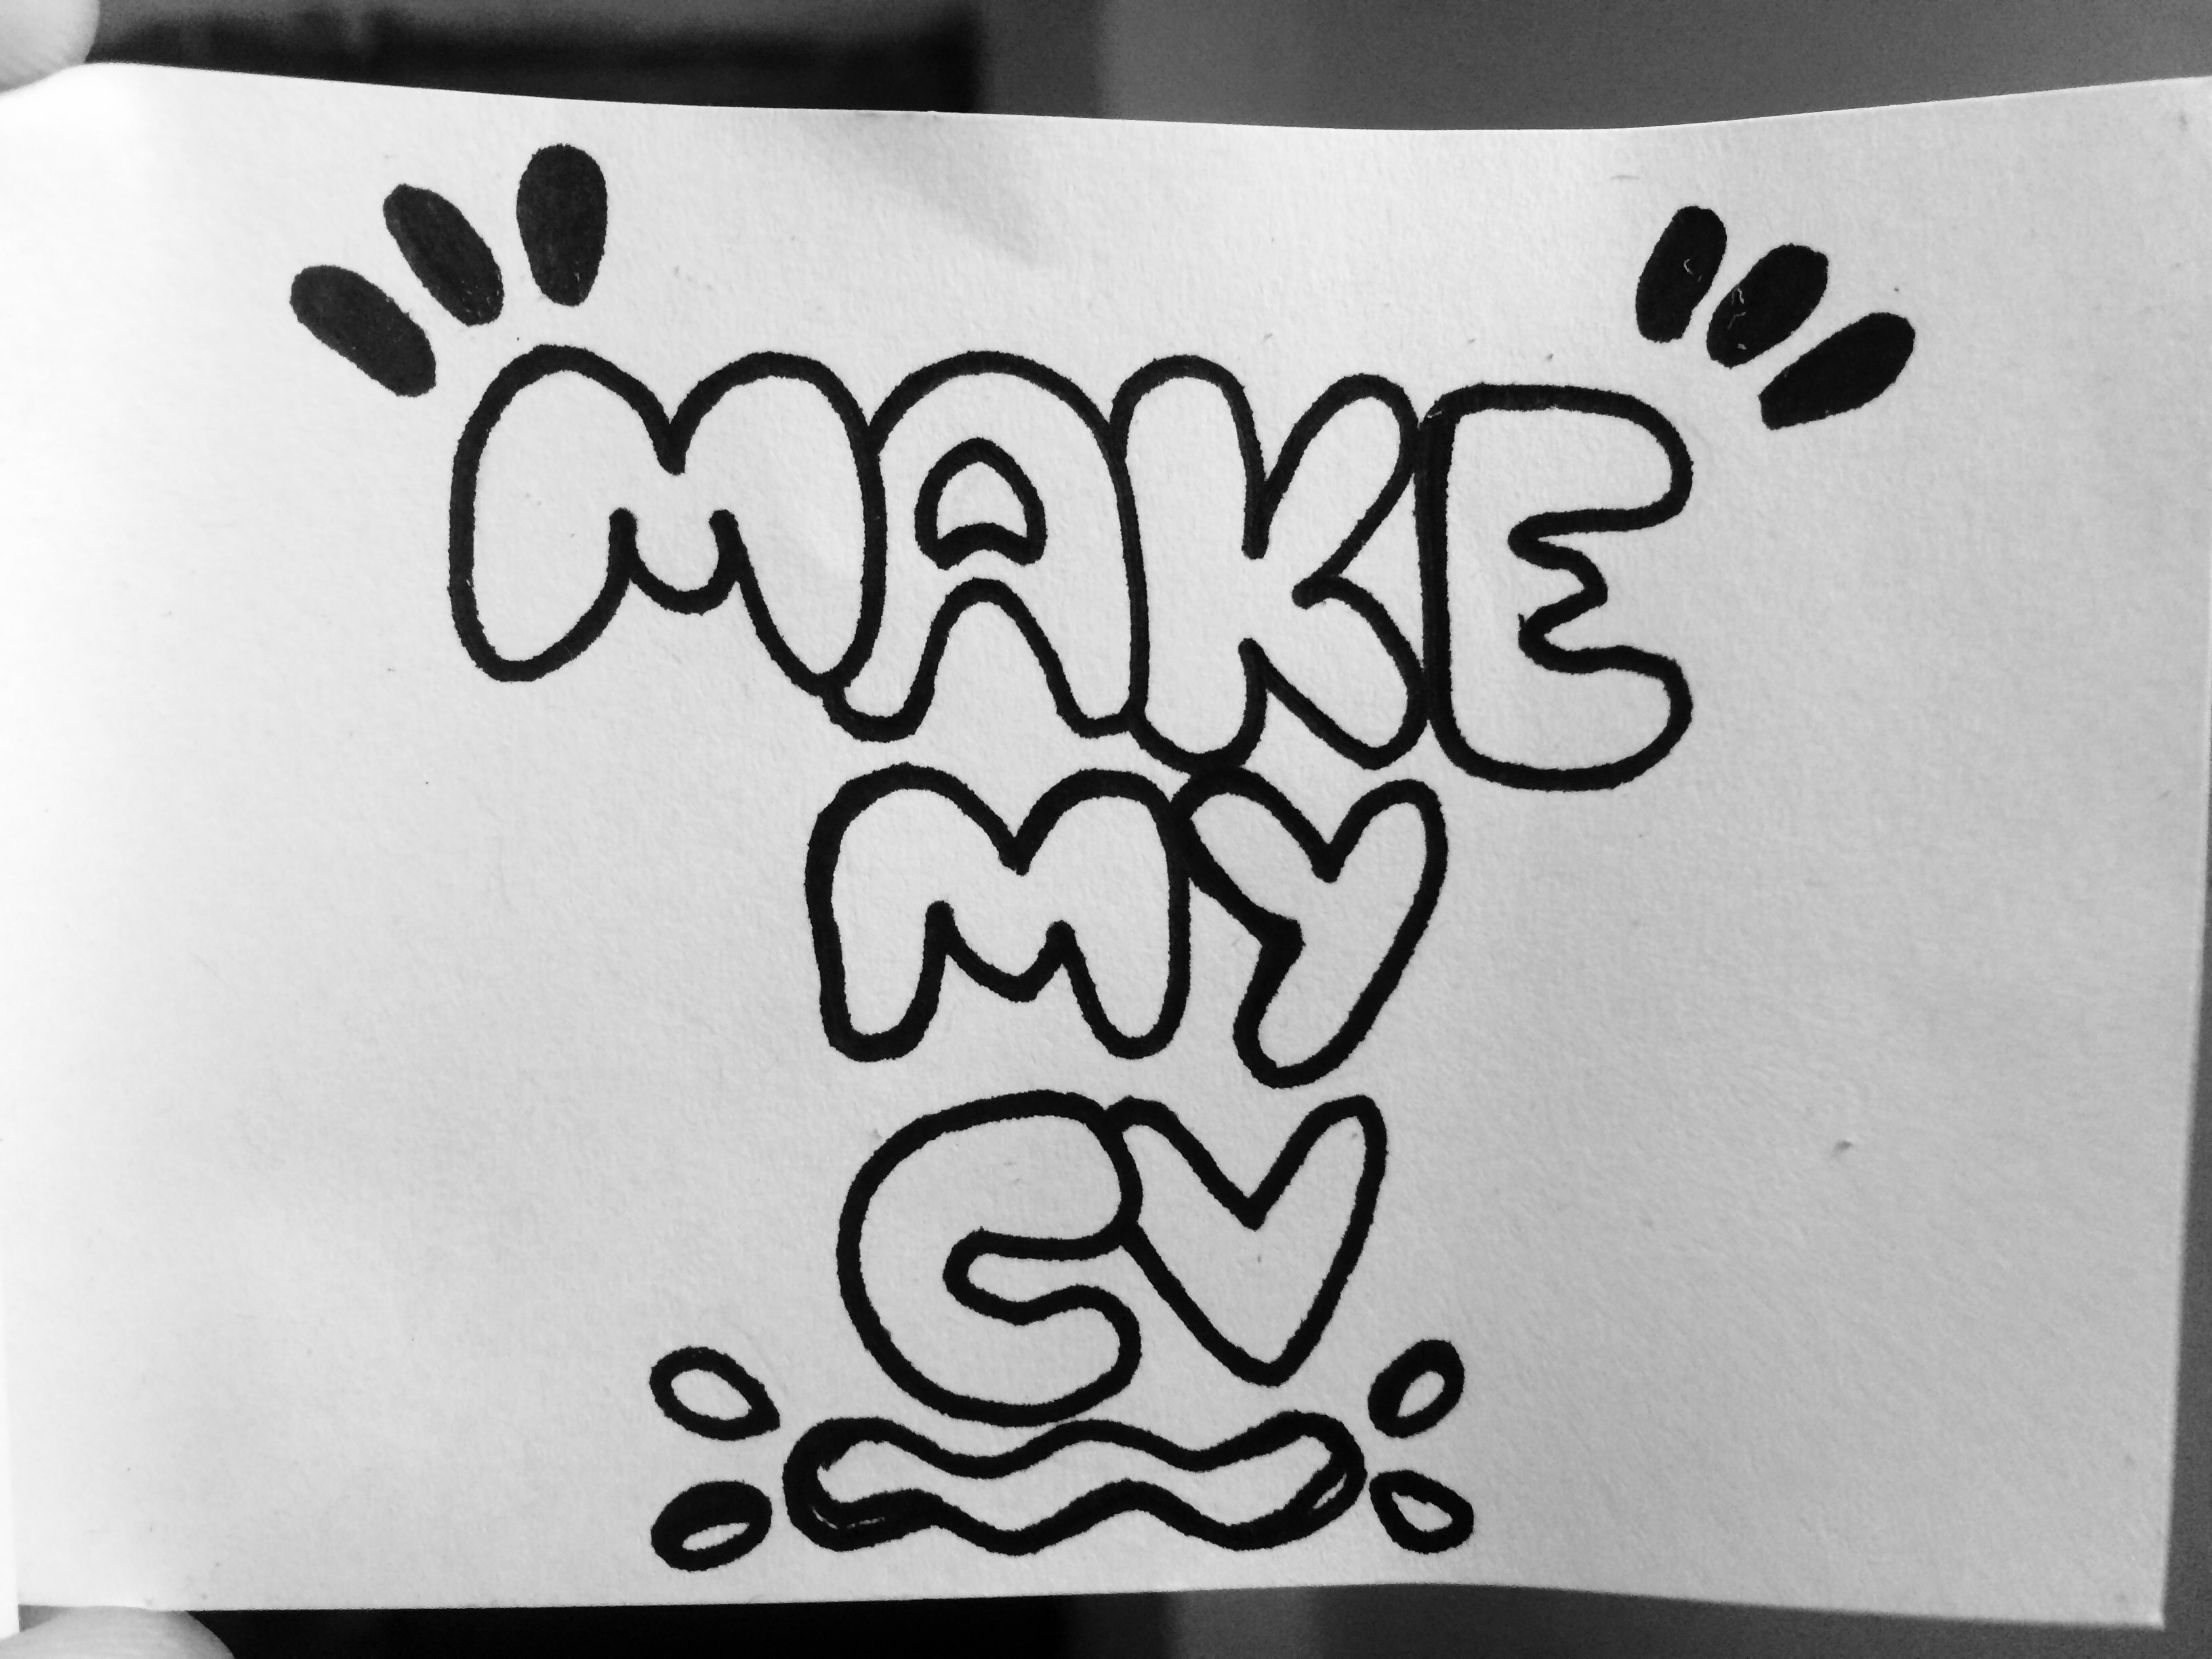 MAKE
MY
CV